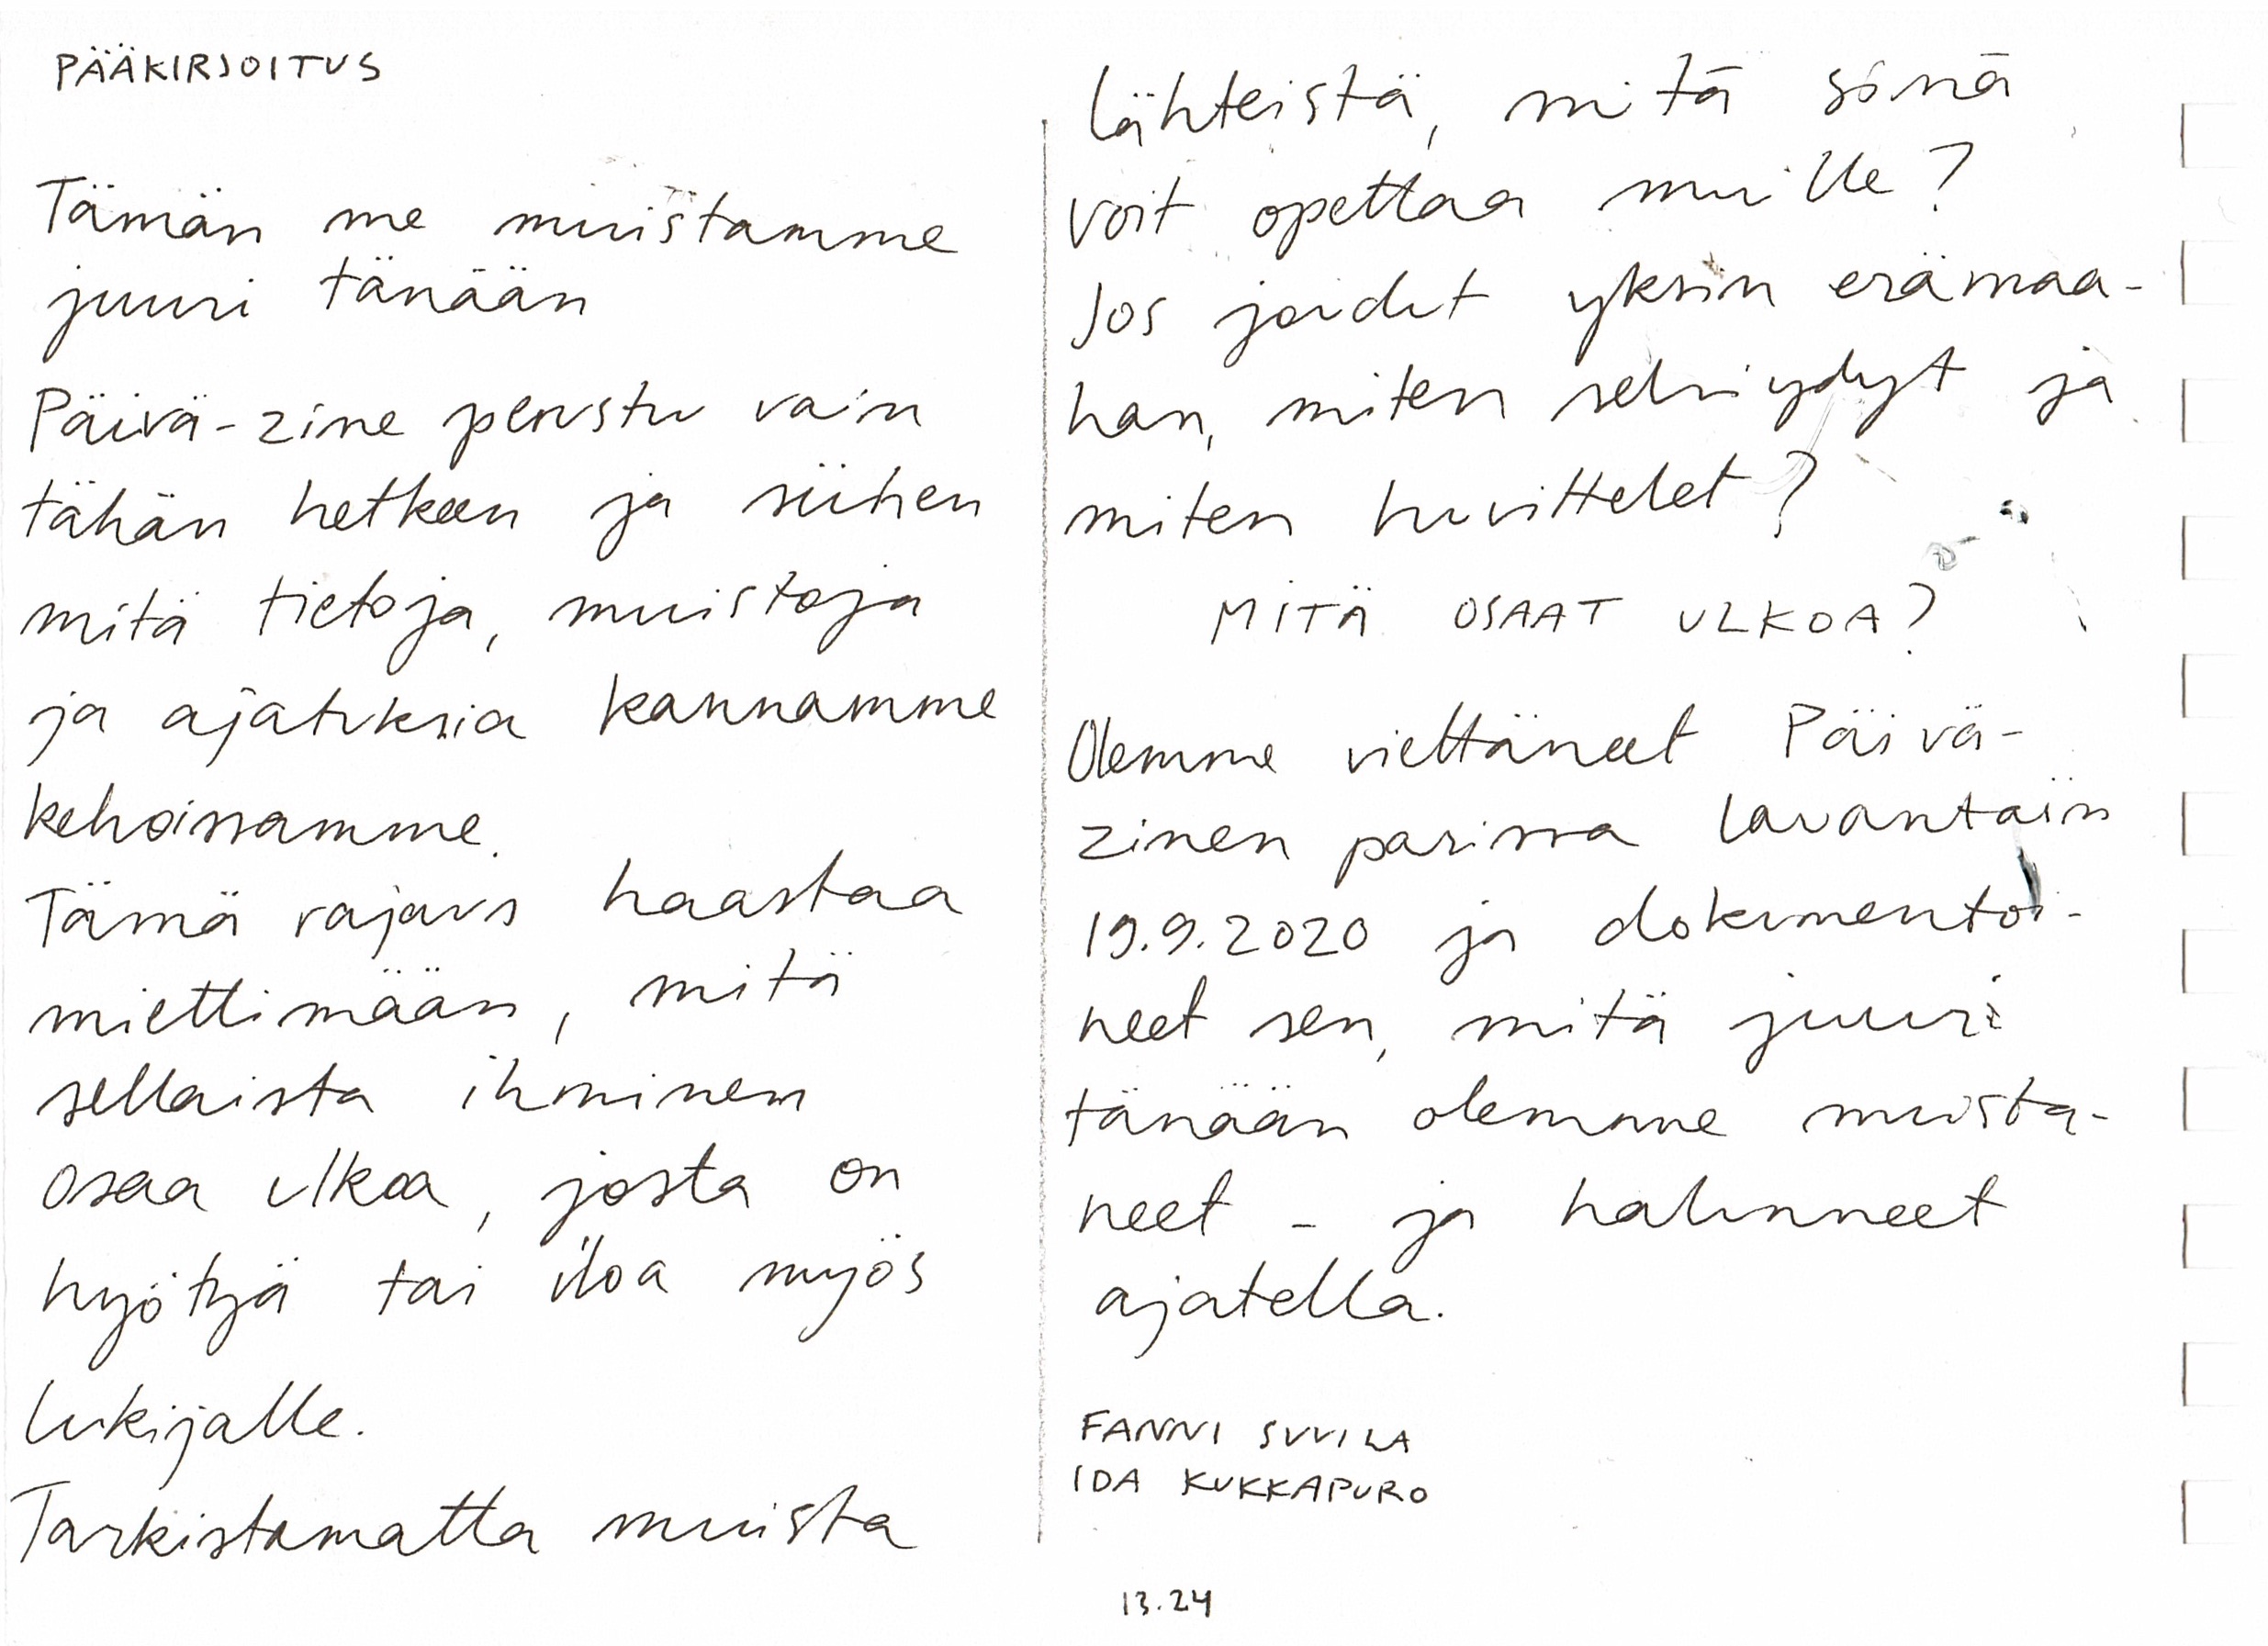 PÄÄKIRJOITUS
Tämän me muistamme
juuri tänään
Päivä-zine perustuu vain
tähän hetkeen ja siihen
mitä tietoja, muistoja
ja ajatuksia kannamme
kehoissamme.
Tämä rajaus haastaa
miettimään, mitä
sellaista ihminen
osaa ulkoa, josta on
hyötyä tai iloa myös
lukijalle.
Tarkistamatta muista
lähteistä, mitä sinä
voit opettaa muille?
Jos joudut yksin erämaa-
han, miten selviydyt ja
miten huvittelet?
MITÄ OSAAT ULKOA?
Olemme viettäneet Päivä-
zinen parissa lauantain
19.9.2020 ja dokumentoi-
neet sen, mitä juuri
tänään olemme muista-
neet - ja halunneet
ajatella.
FANNI SUVILA
IDA KUKKAPURO
13.24